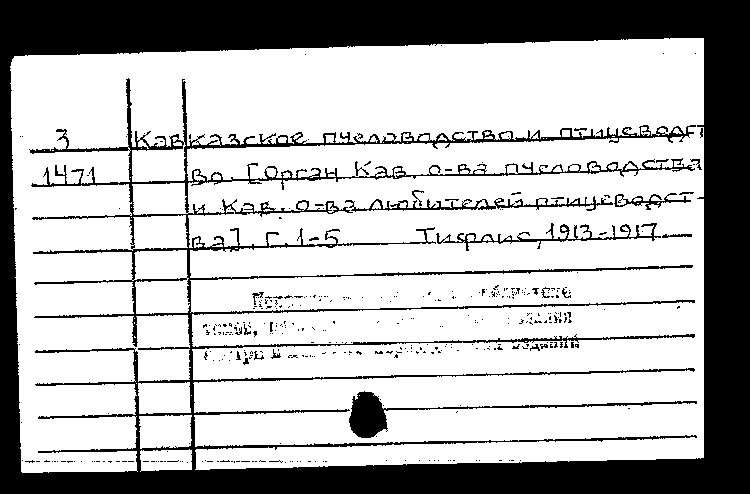 3 Кавказское пчеловодство и птицеводст
1471 во. [Орган Кав. о-ва пчеловодства
и Кав. о-ва любителей птицеводст-
ва]. Г. 1-5 Тифлис, 1913-1917.
библиотеке
томов,
смотри в изданий